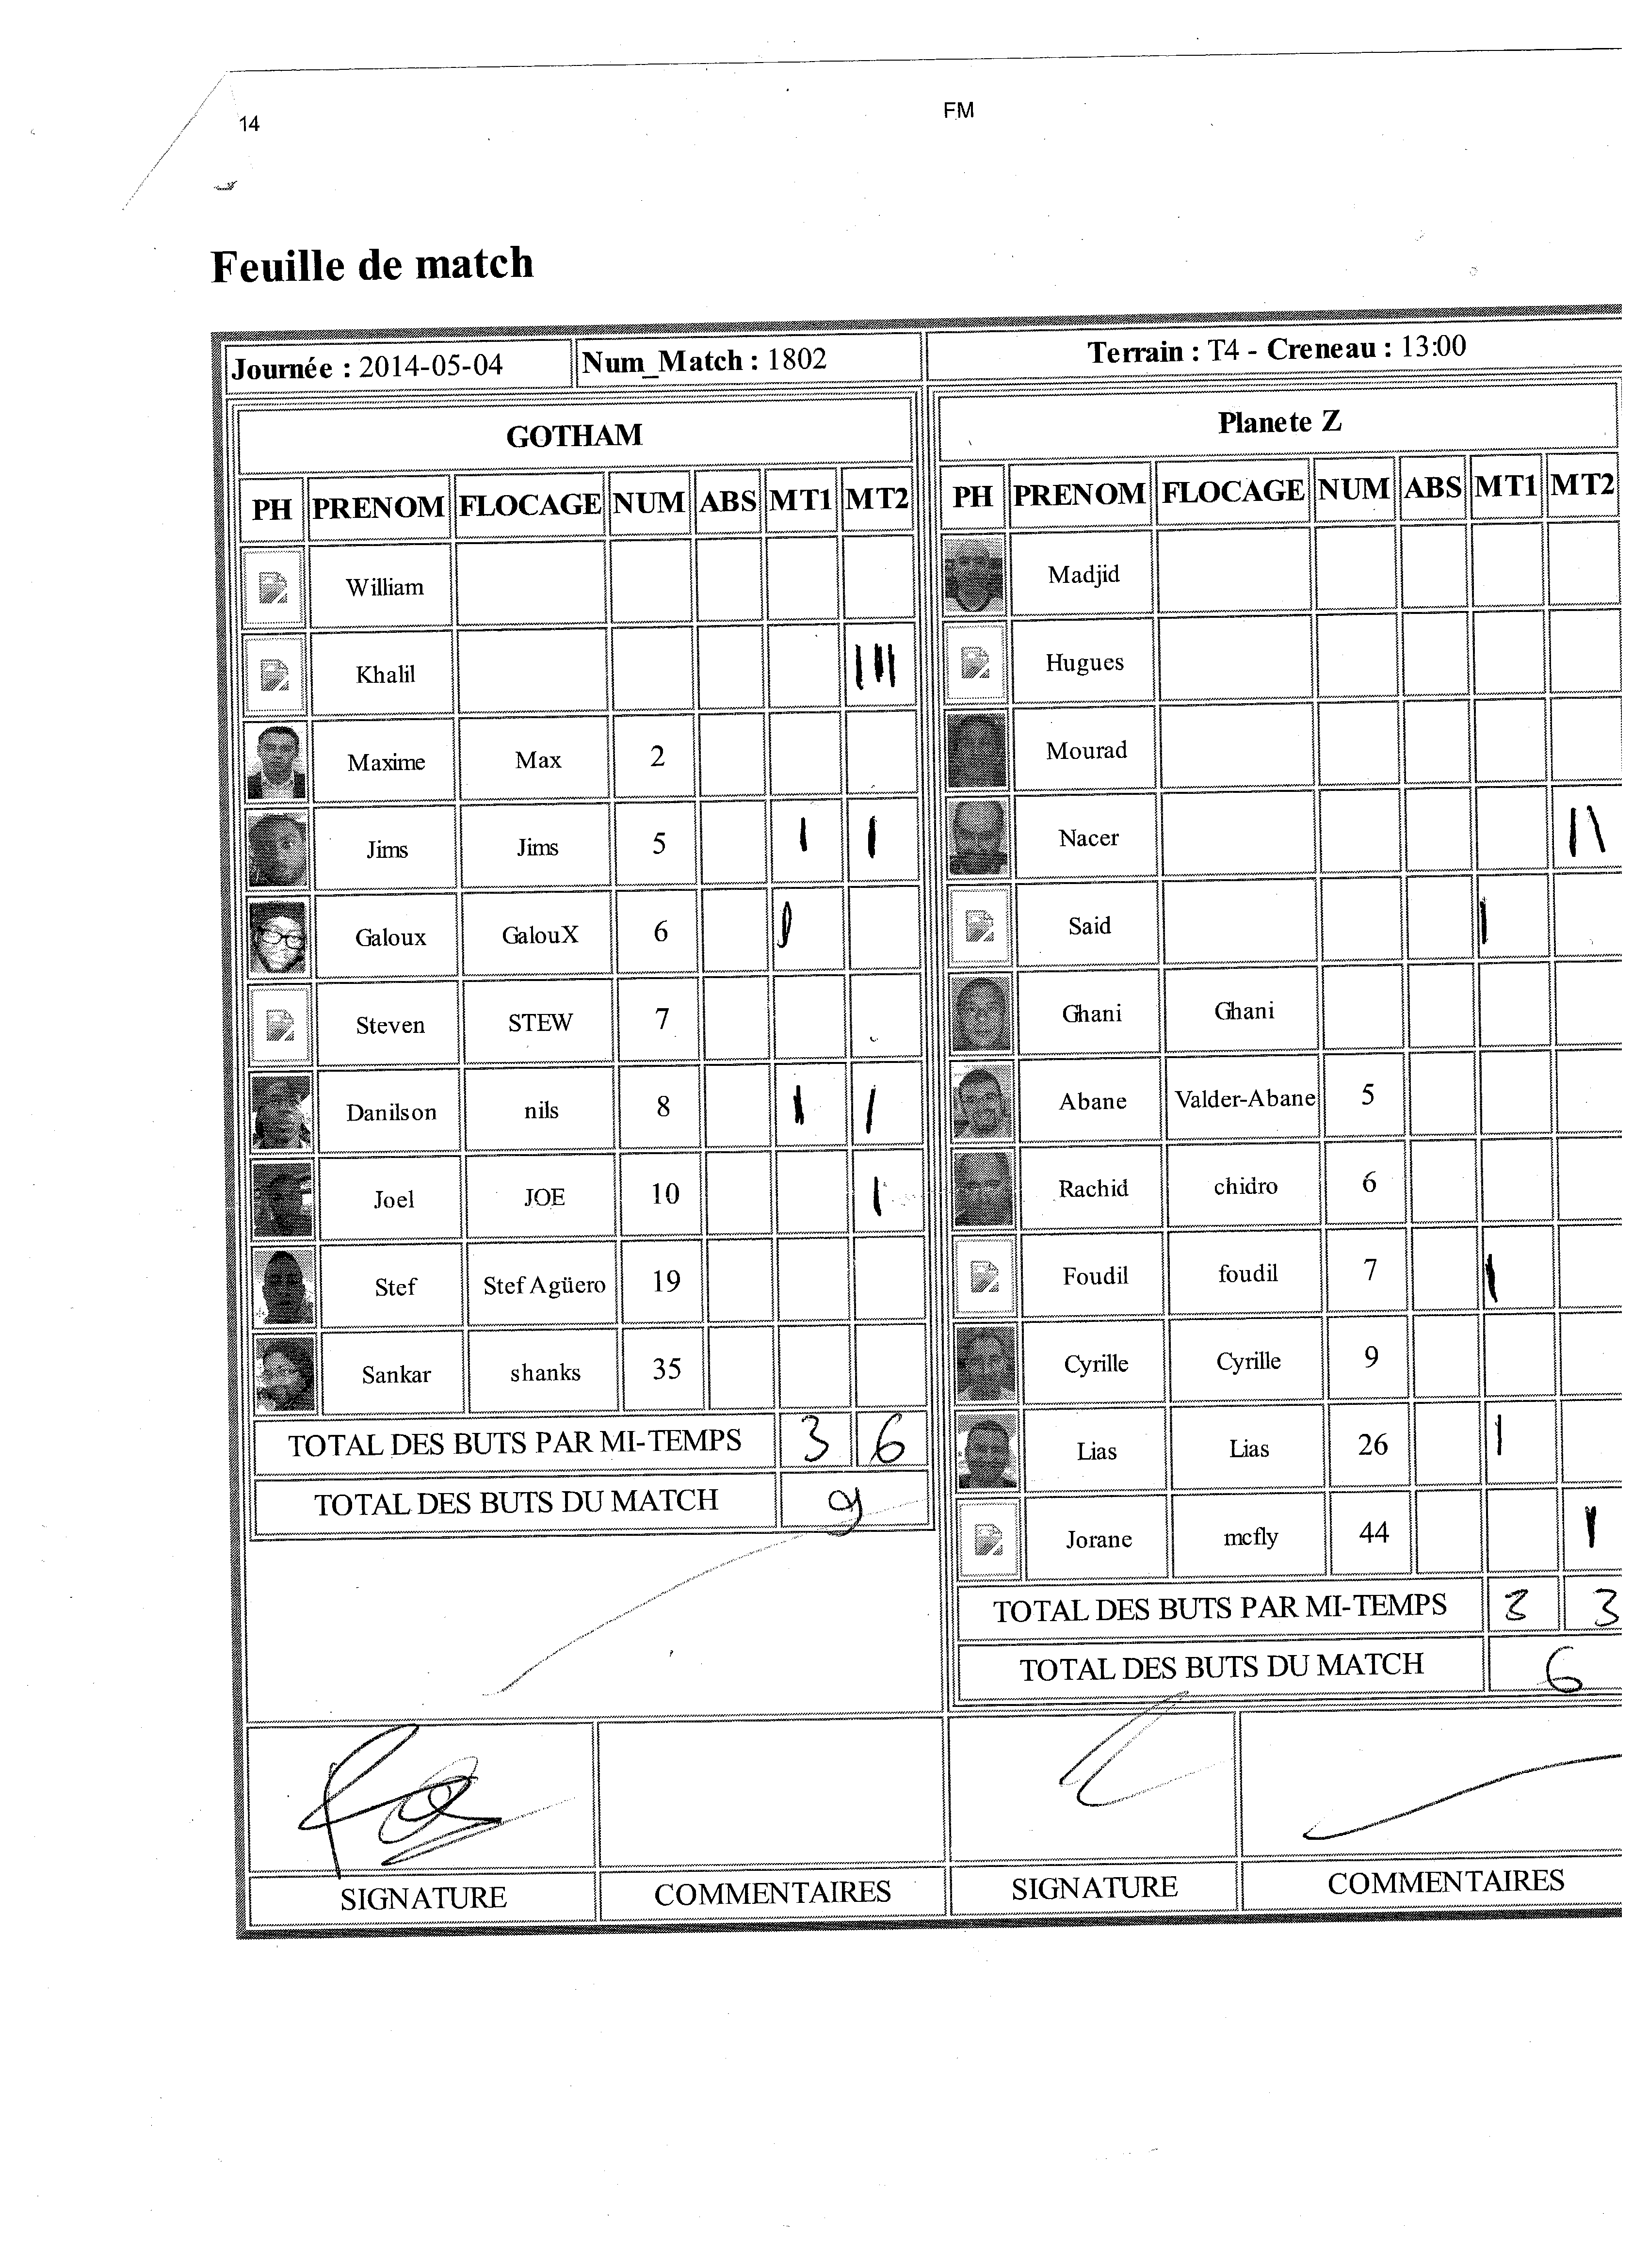 14
FM
Feuille de match
Journée : 2014-05-04 Num_Match : 1802 Terrain : T4 - Creneau : 13:00
GOTHAM
PH PRENOM FLOCAGE NUM ABS MT1 MT2
William
Khalil
Maxime Max 2
Jims Jims 5
Galoux GalouX 6
Steven STEW 7
Danilson nils 8
Joel JOE 10
Stef Stef Agüero 19
Sankar shanks 35
TOTAL DES BUTS PAR MI-TEMPS 3 6
TOTAL DES BUTS DU MATCH 9
SIGNATURE COMMENTAIRES
Planete Z
PH PRENOM FLOCAGE NUM ABS MT1 MT2
Madjid
Hugues
Mourad
Nacer
Said
Ghani Ghani
Abane Valder-Abane 5
Rachid chidro 6
Foudil foudil 7
Cyrille Cyrille 9
Lias Lias 26
Jorane mcfly 44
TOTAL DES BUTS PAR MI-TEMPS 3 3
TOTAL DES BUTS DU MATCH 6
SIGNATURE COMMENTAIRES